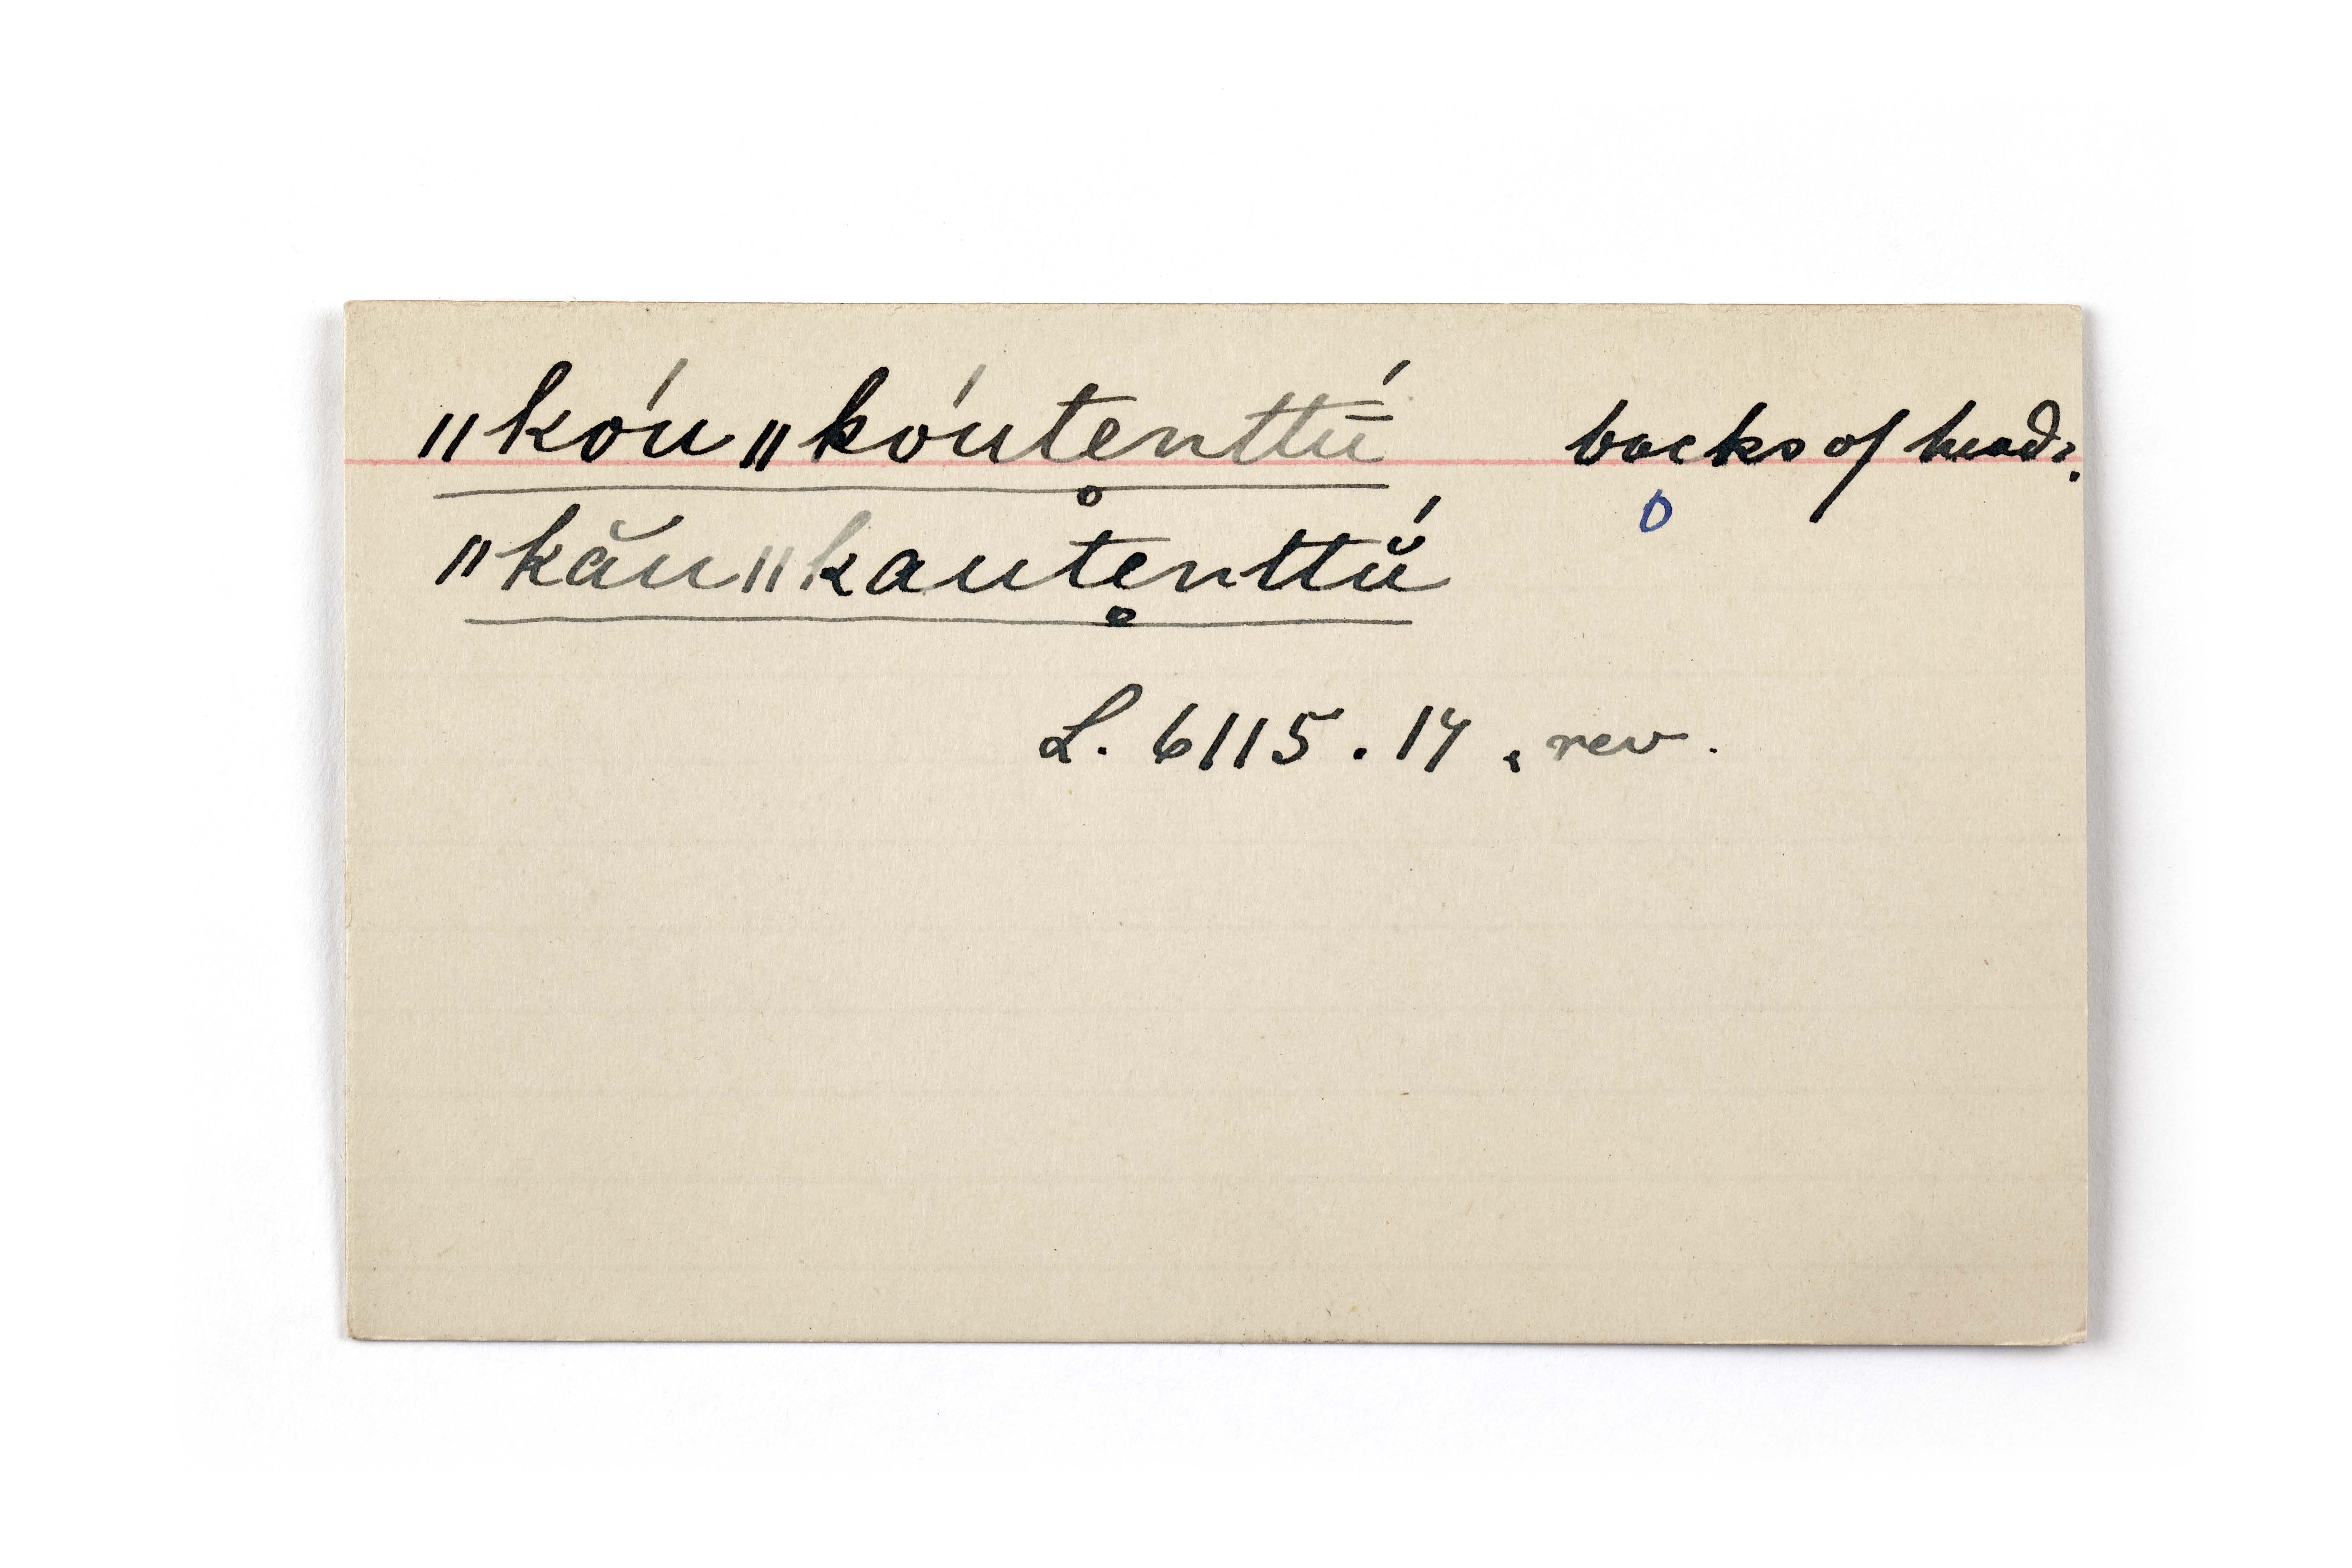 ǁkóu ǁkóutẹnttū́ backs of heads.
ǁkăuǁkautẹnttŭ́
L. 6115. 14, rev.